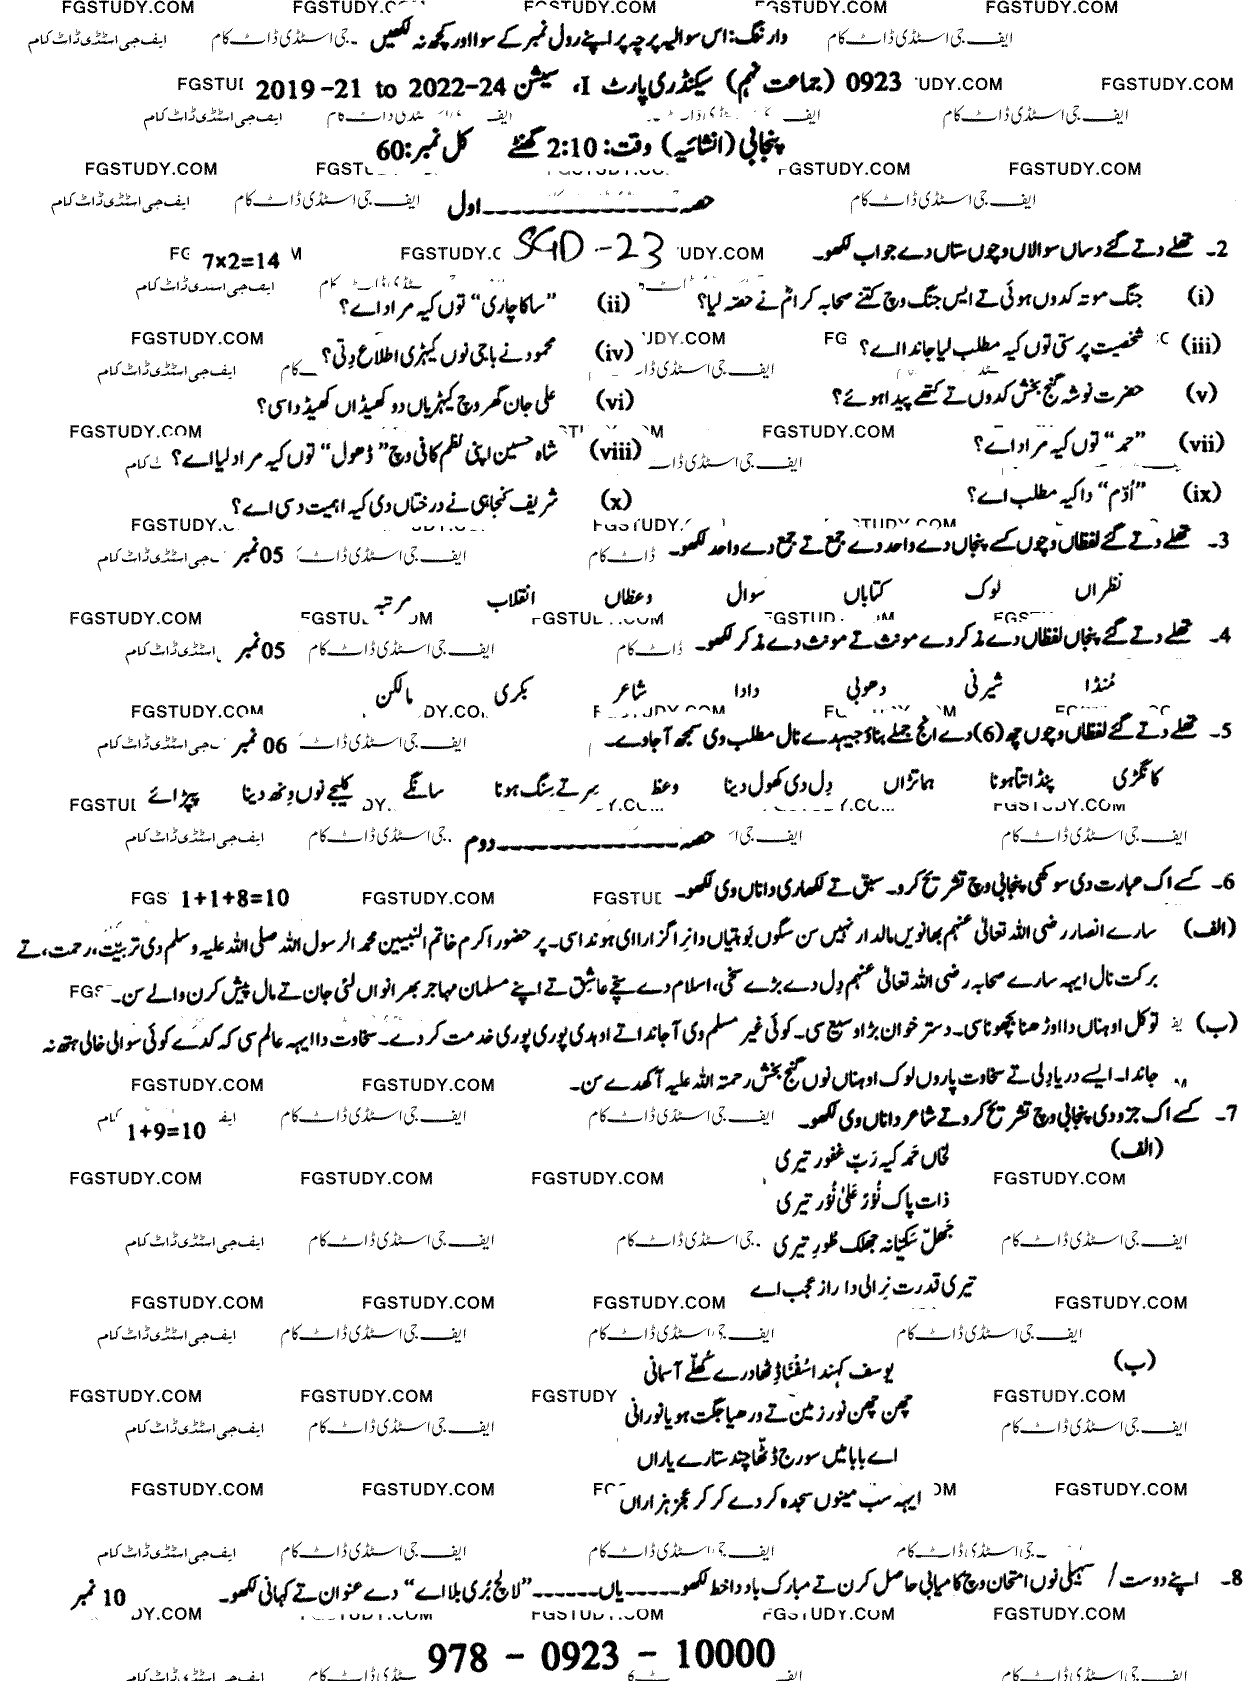 وارننگ: اس سوالیہ پرچہ پر اپنے رول نمبر کے سوا اور کچھ نہ لکھیں۔
0923 (جماعت نہم) سیکنڈری پارٹ I، سیشن 2019-21 to 2022-24
پنجابی (انشائیہ) وقت: 2:10 گھنٹے کل نمبر: 60
حصہ اول
SGD-23
2۔ تھلے دتے گئے دساں سوالاں وچوں ستاں دے جواب لکھو۔ 7x2=14
(i) جنگ موتہ کدوں ہوئی تے ایس جنگ وچ کتنے صحابہ کرامؓ نے حصہ لیا؟ (ii) "ساکاچاری" توں کیہ مراد اے؟
(iii) شخصیت پرستی توں کیہ مطلب لیا جاندا اے؟ (iv) محمود نے باجی نوں کیہڑی اطلاع دتی؟
(v) حضرت نوشہ گنج بخش کدوں تے کتھے پیدا ہوئے؟ (vi) علی جان گھر وچ کیہڑیاں دو کھیڈاں کھیڈدا سی؟
(vii) "حمد" توں کیہ مراد اے؟ (viii) شاہ حسین اپنی نظم کافی وچ "ڈھول" توں کیہ مراد لیا اے؟
(ix) "اُدّم" دا کیہ مطلب اے؟ (x) شریف کنجاہی نے درختاں دی کیہ اہمیت دسی اے؟
3۔ تھلے دتے گئے لفظاں وچوں کسے پنجاں دے واحد دے جمع تے جمع دے واحد لکھو۔ 05 نمبر
نظراں لوک کتاباں سوال وعظاں انقلاب مرتبہ
4۔ تھلے دتے گئے پنجاں لفظاں دے مذکر دے مونث تے مونث دے مذکر لکھو۔ 05 نمبر
مُنڈا شیرنی دھوبی دادا شاعر بکری مالکن
5۔ تھلے دتے گئے لفظاں وچوں چھ (6) دے انج جملے بناؤ جیہدے نال مطلب دی سمجھ آجاوے۔ 06 نمبر
کانگڑی پنڈا تتا ہونا ہماتڑاں دِل دی کھول دینا وعظ سر تے سِنگ ہونا سانگے کلیجے نوں وِنھ دینا پیڑائے
حصہ دوم
6۔ کسے اک عبارت دی سوکھی پنجابی وچ تشریح کرو۔ سبق تے لکھاری دا ناں وی لکھو۔ 1+1+8=10
(الف) سارے انصار رضی اللہ تعالیٰ عنہم بھانویں مالدار نہیں سن سگوں بوہتیاں دا نِرا گزارا ای ہوندا سی۔ پر حضور اکرم خاتم النبیین محمد الرسول اللہ صلی اللہ علیہ وسلم دی تربیّت، رحمت، تے
برکت نال ایہہ سارے صحابہ رضی اللہ تعالیٰ عنہم دِل دے بڑے سخی، اسلام دے سچے عاشق تے اپنے مسلمان مہاجر بھرانواں لئی جان تے مال پیش کرن والے سن۔
(ب) توکل اوہناں دا اوڑھنا بچھونا سی۔ دسترخوان بڑا وسیع سی۔ کوئی غیر مسلم وی آجاندا تے اوہدی پوری پوری خدمت کردے۔ سخاوت دا ایہہ عالم سی کہ کدے کوئی سوالی خالی ہتھ نہ
جاندا۔ ایسے دریا دلی تے سخاوت پاروں لوک اوہناں نوں گنج بخش رحمتہ اللہ علیہ آکھدے سن۔
7۔ کسے اک جزو دی پنجابی وچ تشریح کرو تے شاعر دا ناں وی لکھو۔ 1+9=10
(الف) لکھاں حمد کیہ رَبّ غفور تیری
ذات پاک نُوْرٌ عَلیٰ نُوْر تیری
جَھل سَکیا نہ جھلک طُور تیری
تیری قدرت نِرالی دا راز عجب اے
(ب) یوسف کہندا سُفناڈِٹھا درے کُھلے آسمانی
چھن چھن نور زمین تے ورھیا جگت ہویا نورانی
اے بابا میں سورج ڈٹھا چند ستارے یاراں
ایہہ سب مینوں سجدہ کردے کر کر عجز ہزاراں
8۔ اپنے دوست / سہیلی نوں امتحان وچ کامیابی حاصل کرن تے مبارک باد دا خط لکھو۔------یاں------"لالچ بُری بلا اے" دے عنوان تے کہانی لکھو۔ 10 نمبر
978 - 0923 - 10000
FGSTUDY.COM
ایف جی اسٹڈی ڈاٹ کام